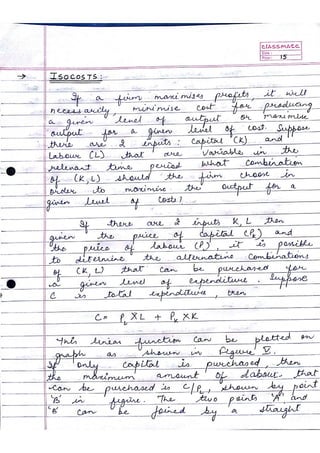 classmate
Date
Page 15
→ ISOCOSTS:
If a firm maximises profits, it will
necessarily minimise cost for producing
a given level of output or maximise
output for a given level of cost. Suppose
there are 2 inputs: Capital (K) and
Labour (L) that are variable in the
relevant time period. What combination
of (K, L) should the firm choose in
order to maximise the output for a
given level of costs?
If there are 2 inputs K, L then
given the price of capital (Pk) and
the price of labour (PL), it is possible
to determine the alternative combinations
of (K, L) that can be purchased for
a given level of expenditure. Suppose
C is total expenditure, then
C = PL X L + PK X K
This linear function can be plotted on
graph as shown in Figure V.
If only capital is purchased, then
the maximum amount of labour that
can be purchased is C/PL, shown by point
'B' in figure. The two points 'A' and
'B' can be joined by a straight